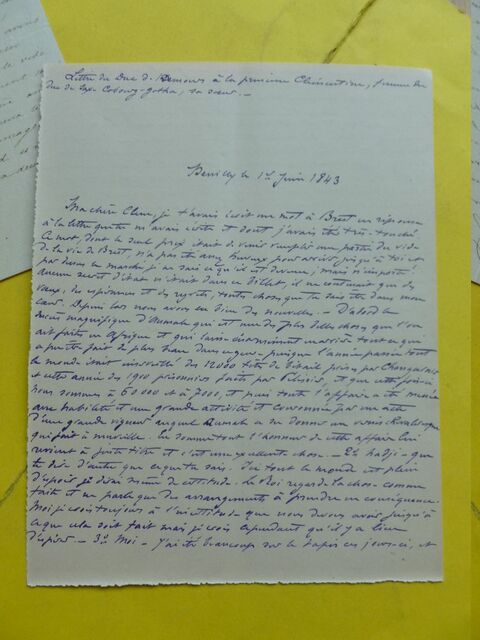 Lettre du Duc de Nemours à la princesse Clémentine, femme du
duc de Saxe Cobourg-Gotha, sa sœur. —
Neuilly le 1er Juin 1843
Ma chère Clem, je t'avais écrit un mot à Brest en réponse
à la lettre que tu m'avais écrite et dont j'avais été très-touché
Ce mot, dont le seul prix était de venir remplir une partie du vide
de la vie de Brest, n'a pas été assez heureux pour arriver jusqu'à toi et
par dans la marche je ne sais ce qu'il est devenu; mais n'importe!
aucun secret d'état n'était dans ce billet, il ne contenait que des
vœux, des espérances et des regrets, toutes choses que tu sais être dans mon
cœur. Depuis lors nous avons eu bien des nouvelles. — D'abord le
succès magnifique d'Aumale qui est une des plus belles choses que l'on
ait faites en Afrique et qui laisse derrière tout ce qui
a peut-être fait de plus beau dans ce genre puisque l'année passée tout
le monde était des 12000 têtes de bétail prises par Changarnier
et cette année des 1900 prisonniers faits par et que cette fois-ci
nous sommes à 60000 et à 3000, et puis toute l'affaire a été menée
avec habileté et une grande activité et couronnée par un acte
d'une grande vigueur auquel Aumale a su donner un vernis
qui fait à merveille. En somme tout l'honneur de cette affaire lui
revient à juste titre et c'est une excellente chose. — 2d hadji — que
te dire d'autre que ce que tu sais. Ici tout le monde est plein
d'espoir je dirai même de certitude. Le Roi regarde la chose comme
faite et ne parle que des arrangements à prendre en conséquence.
Moi je crois toujours à l'incertitude que nous devons avoir jusqu'à
ce que cela soit fait mais je crois cependant qu'il y a lieu
d'espérer. — 3° Moi — J'ai été beaucoup sur le tapis ces jours-ci, et